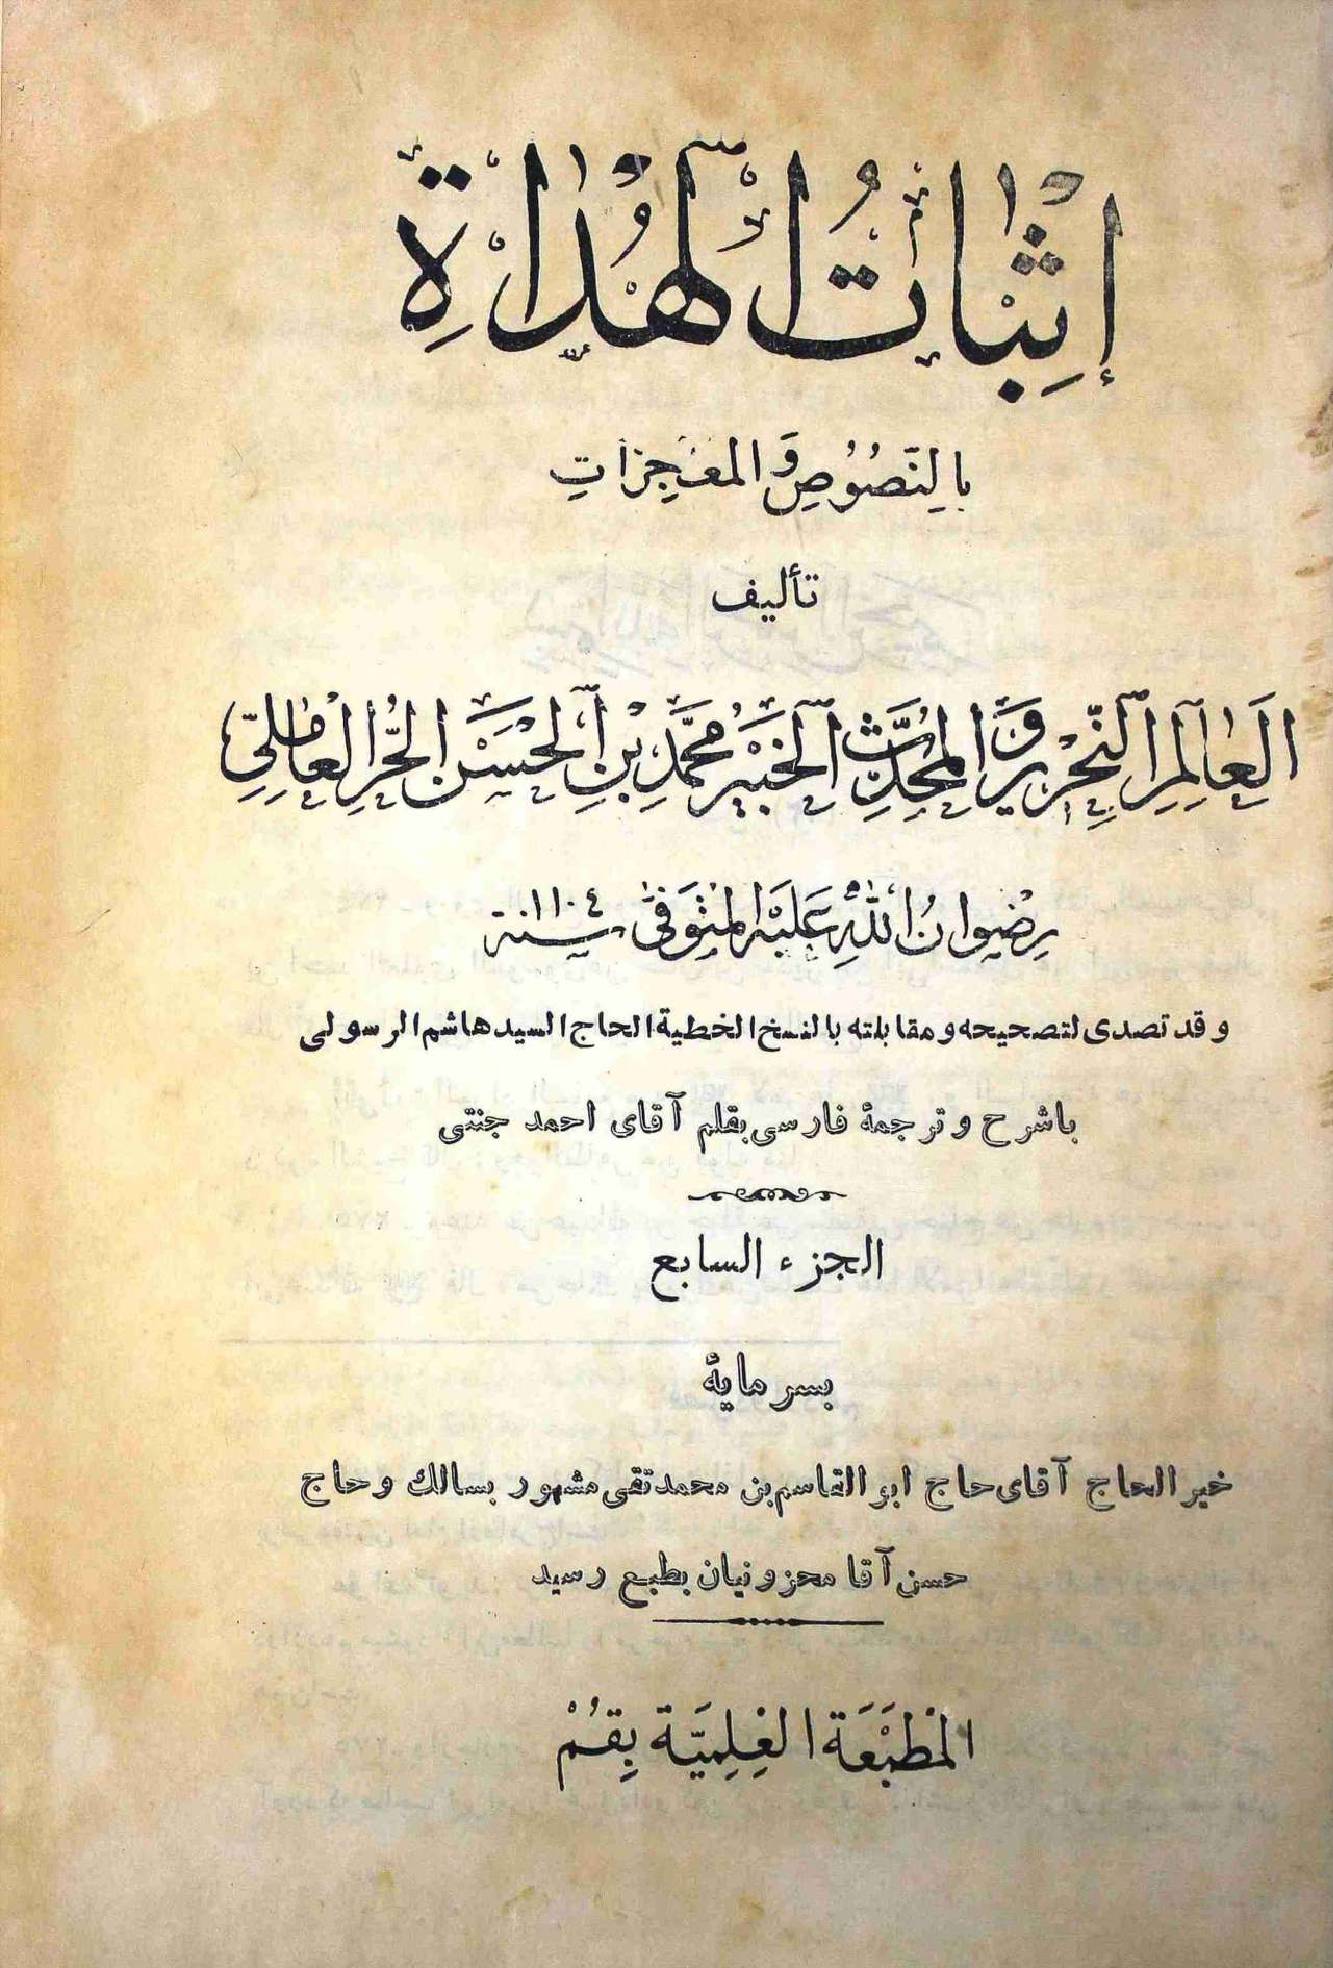 إِثْبَاتُ الْهُدَاةِ
بِالنُّصُوصِ وَالْمُعْجِزَاتِ
تأليف
الْعَالِمِ النِّحْرِيرِ وَالْمُحَدِّثِ الْخَبِيرِ مُحَمَّدِ بْنِ الْحَسَنِ الْحُرِّ الْعَامِلِيِّ
رِضْوَانُ اللهِ عَلَيْهِ الْمُتَوَفَّى سنة ١١٠٤
وقد تصدى لتصحيحه ومقابلته بالنسخ الخطية الحاج السيد هاشم الرسولى
باشرح وترجمهٔ فارسى بقلم آقاى احمد جنتى
الجزء السابع
بسرمايهٔ
خير الحاج آقاى حاج ابوالقاسم بن محمد تقى مشهور بسالك وحاج
حسن آقا محزونيان بطبع رسيد
الْمَطْبَعَة الْعِلْمِيَّة بِقُمْ